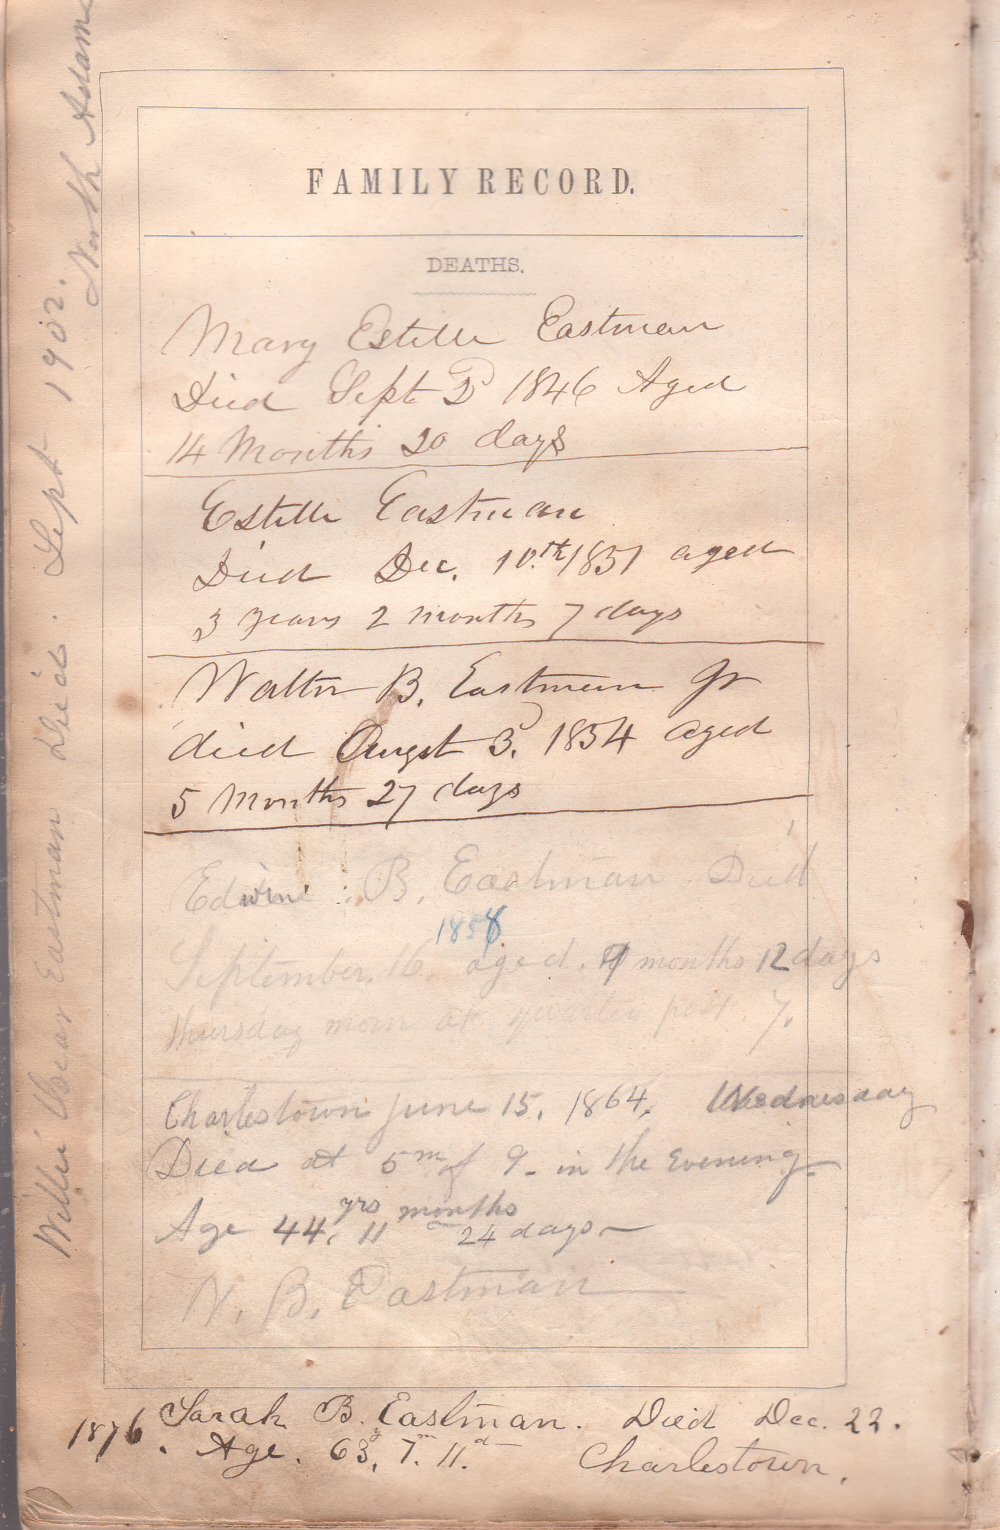 FAMILY RECORD.
DEATHS.
Mary Estelle Eastman
Died Sept 2d 1846 Aged
14 Months 20 days
Estelle Eastman
Died Dec. 10.th 1851 aged
3 years 2 months 7 days
Walter B. Eastman Jr
died Augst 3d. 1854 aged
5 Months 27 days
Edwine B. Eastman Died
1858
September. 16. aged. 9 months 12 days
thursday morn at quarter past 7.
Charlestown June 15. 1864. Wednesday
Died at 5m of 9 - in the Evening
yrs months
Age 44, 11 24 days -
W. B. Eastman
Sarah B. Eastman. Died Dec. 22.
1876. Age. 63y, 7m. 11d.
Charlestown.
Willie Oscar Eastman Died. Sept 1902.
North Adams